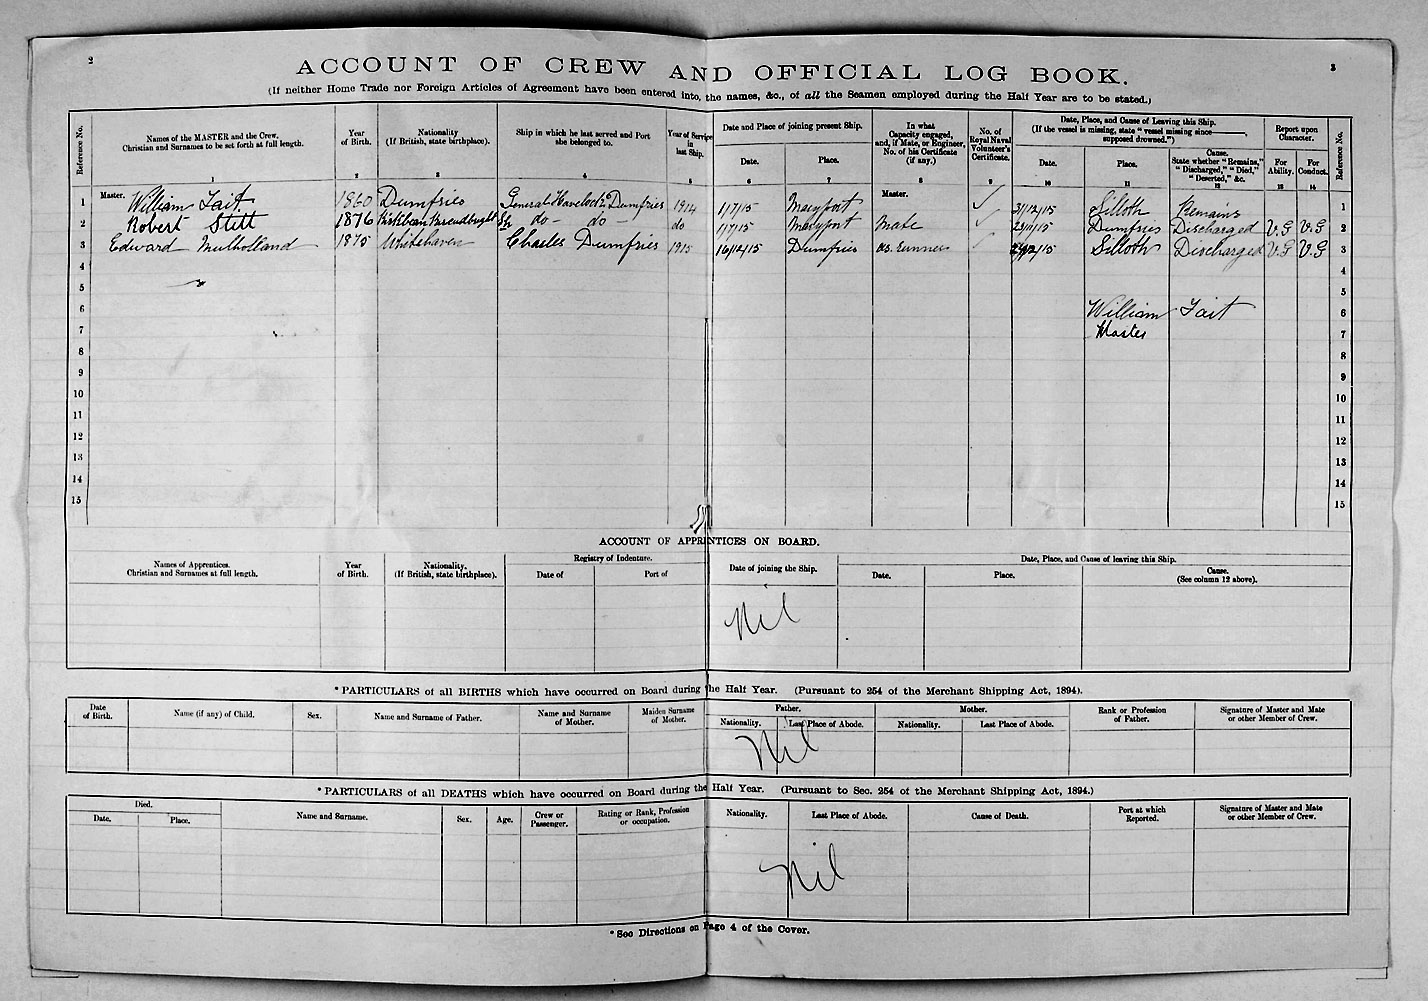 2
3
ACCOUNT OF CREW AND OFFICIAL LOG BOOK.
(If neither Home Trade nor Foreign Articles of Agreement have been entered into, the names, &c., of all the Seamen employed during the Half Year are to be stated.)
Reference No. | Names of the MASTER and the Crew. Christian and Surnames to be set forth at full length. | Year of Birth. | Nationality (If British, state birthplace). | Ship in which he last served and Port she belonged to. | Year of Service in last Ship. | Date and Place of joining present Ship. Date. Place. | In what Capacity engaged, and, if Mate, or Engineer, No. of his Certificate (if any.) | No. of Royal Naval Volunteer's Certificate. | Date, Place, and Cause of Leaving this Ship. (If the vessel is missing, state "vessel missing since———, supposed drowned.") Date. Place. Cause. State whether "Remains," "Discharged," "Died," "Deserted," &c. | Report upon Character. For Ability. For Conduct. | Reference No.
1 2 3 4 5 6 7 8 9 10 11 12 13 14
1 Master. William Tait 1860 Dumfries General Havelock Dumfries 1914 1/7/15 Maryport Master. 31/12/15 Silloth Remains 1
2 Robert Stitt 1876 Kirkbean do - do - do 1/7/15 Maryport Mate Dumfries Discharged V.G V.G 2
3 Edward Mulholland 1875 Whitehaven Charles Dumfries 1915 16/12/15 Dumfries as runner Silloth Discharged V.G V.G 3
4 4
5 5
6 William Tait 6
7 Master 7
8 8
9 9
10 10
11 11
12 12
13 13
14 14
15 15
ACCOUNT OF APPRENTICES ON BOARD.
Names of Apprentices. Christian and Surnames at full length. | Year of Birth. | Nationality. (If British, state birthplace). | Registry of Indenture. Date of Port of | Date of joining the Ship. | Date, Place, and Cause of leaving this Ship. Date. Place. Cause. (See column 12 above).
Nil
*PARTICULARS of all BIRTHS which have occurred on Board during the Half Year. (Pursuant to 254 of the Merchant Shipping Act, 1894).
Date of Birth. | Name (if any) of Child. | Sex. | Name and Surname of Father. | Name and Surname of Mother. | Maiden Surname of Mother. | Father. Nationality. Last Place of Abode. | Mother. Nationality. Last Place of Abode. | Rank or Profession of Father. | Signature of Master and Mate or other Member of Crew.
Nil
*PARTICULARS of all DEATHS which have occurred on Board during the Half Year. (Pursuant to Sec. 254 of the Merchant Shipping Act, 1894.)
Died. Date. Place. | Name and Surname. | Sex. | Age. | Crew or Passenger. | Rating or Rank, Profession or occupation. | Nationality. | Last Place of Abode. | Cause of Death. | Port at which Reported. | Signature of Master and Mate or other Member of Crew.
Nil
*See Directions on Page 4 of the Cover.